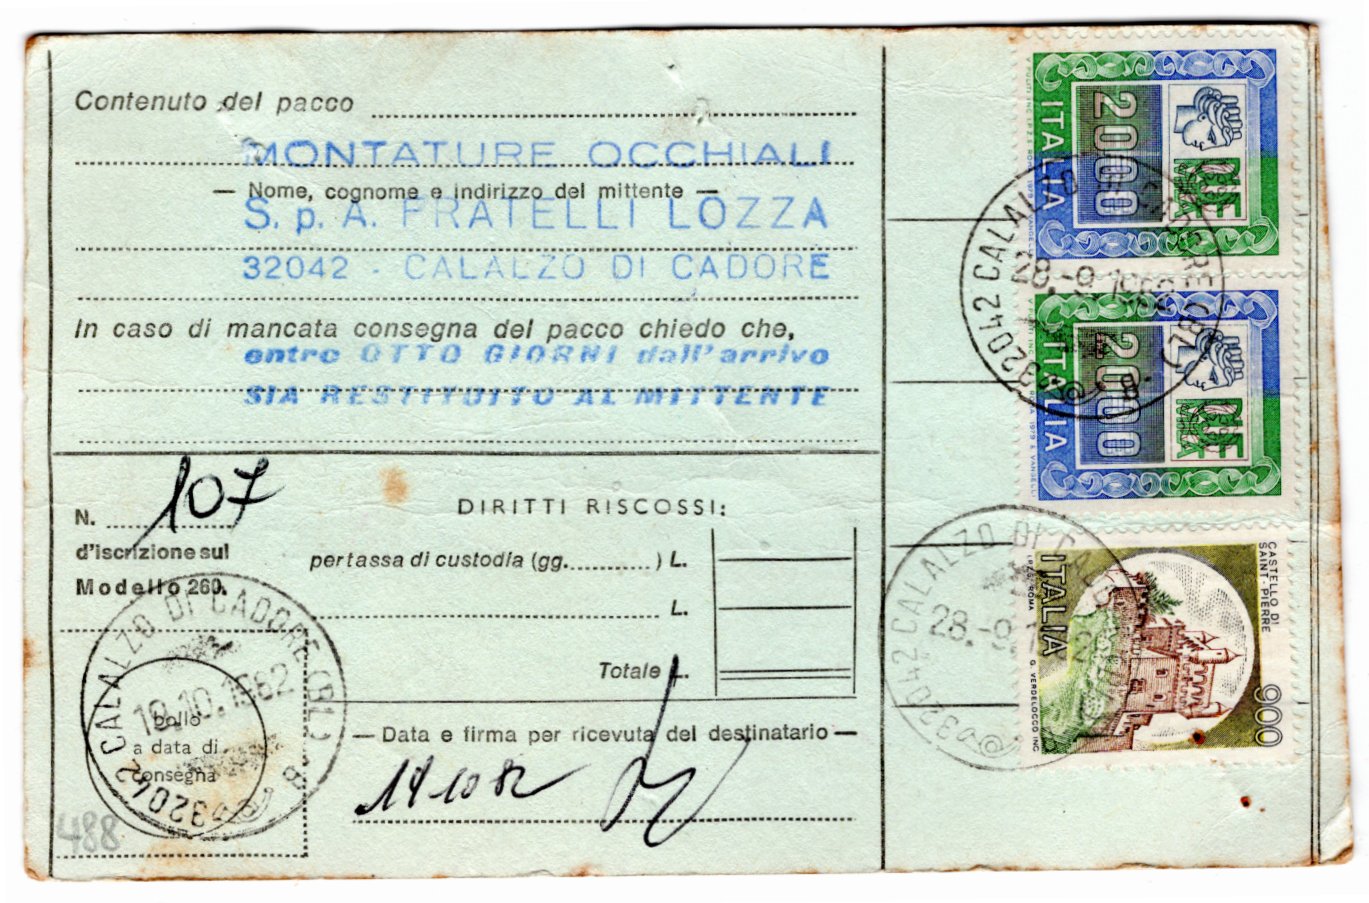 Contenuto del pacco
MONTATURE OCCHIALI
— Nome, cognome e indirizzo del mittente —
S.p.A. FRATELLI LOZZA
32042 - CALALZO DI CADORE
In caso di mancata consegna del pacco chiedo che,
entro OTTO GIORNI dall'arrivo
SIA RESTITUITO AL MITTENTE
N. 107
d'iscrizione sul
Modello 260.
DIRITTI RISCOSSI:
per tassa di custodia (gg. ) L.
L.
Totale L.
— Data e firma per ricevuta del destinatario —
14-10-82
bollo
a data di
consegna
32042 CALALZO DI CADORE (BL)
19.10.1982
488
ITALIA
2000
ITALIA
2000
32042 CALALZO DI CADORE (BL)
28.-9.1982
ITALIA
CASTELLO DI
SAINT-PIERRE
900
G. VERDELOCCO INC.
32042 CALALZO DI CADORE
28.-9.1982